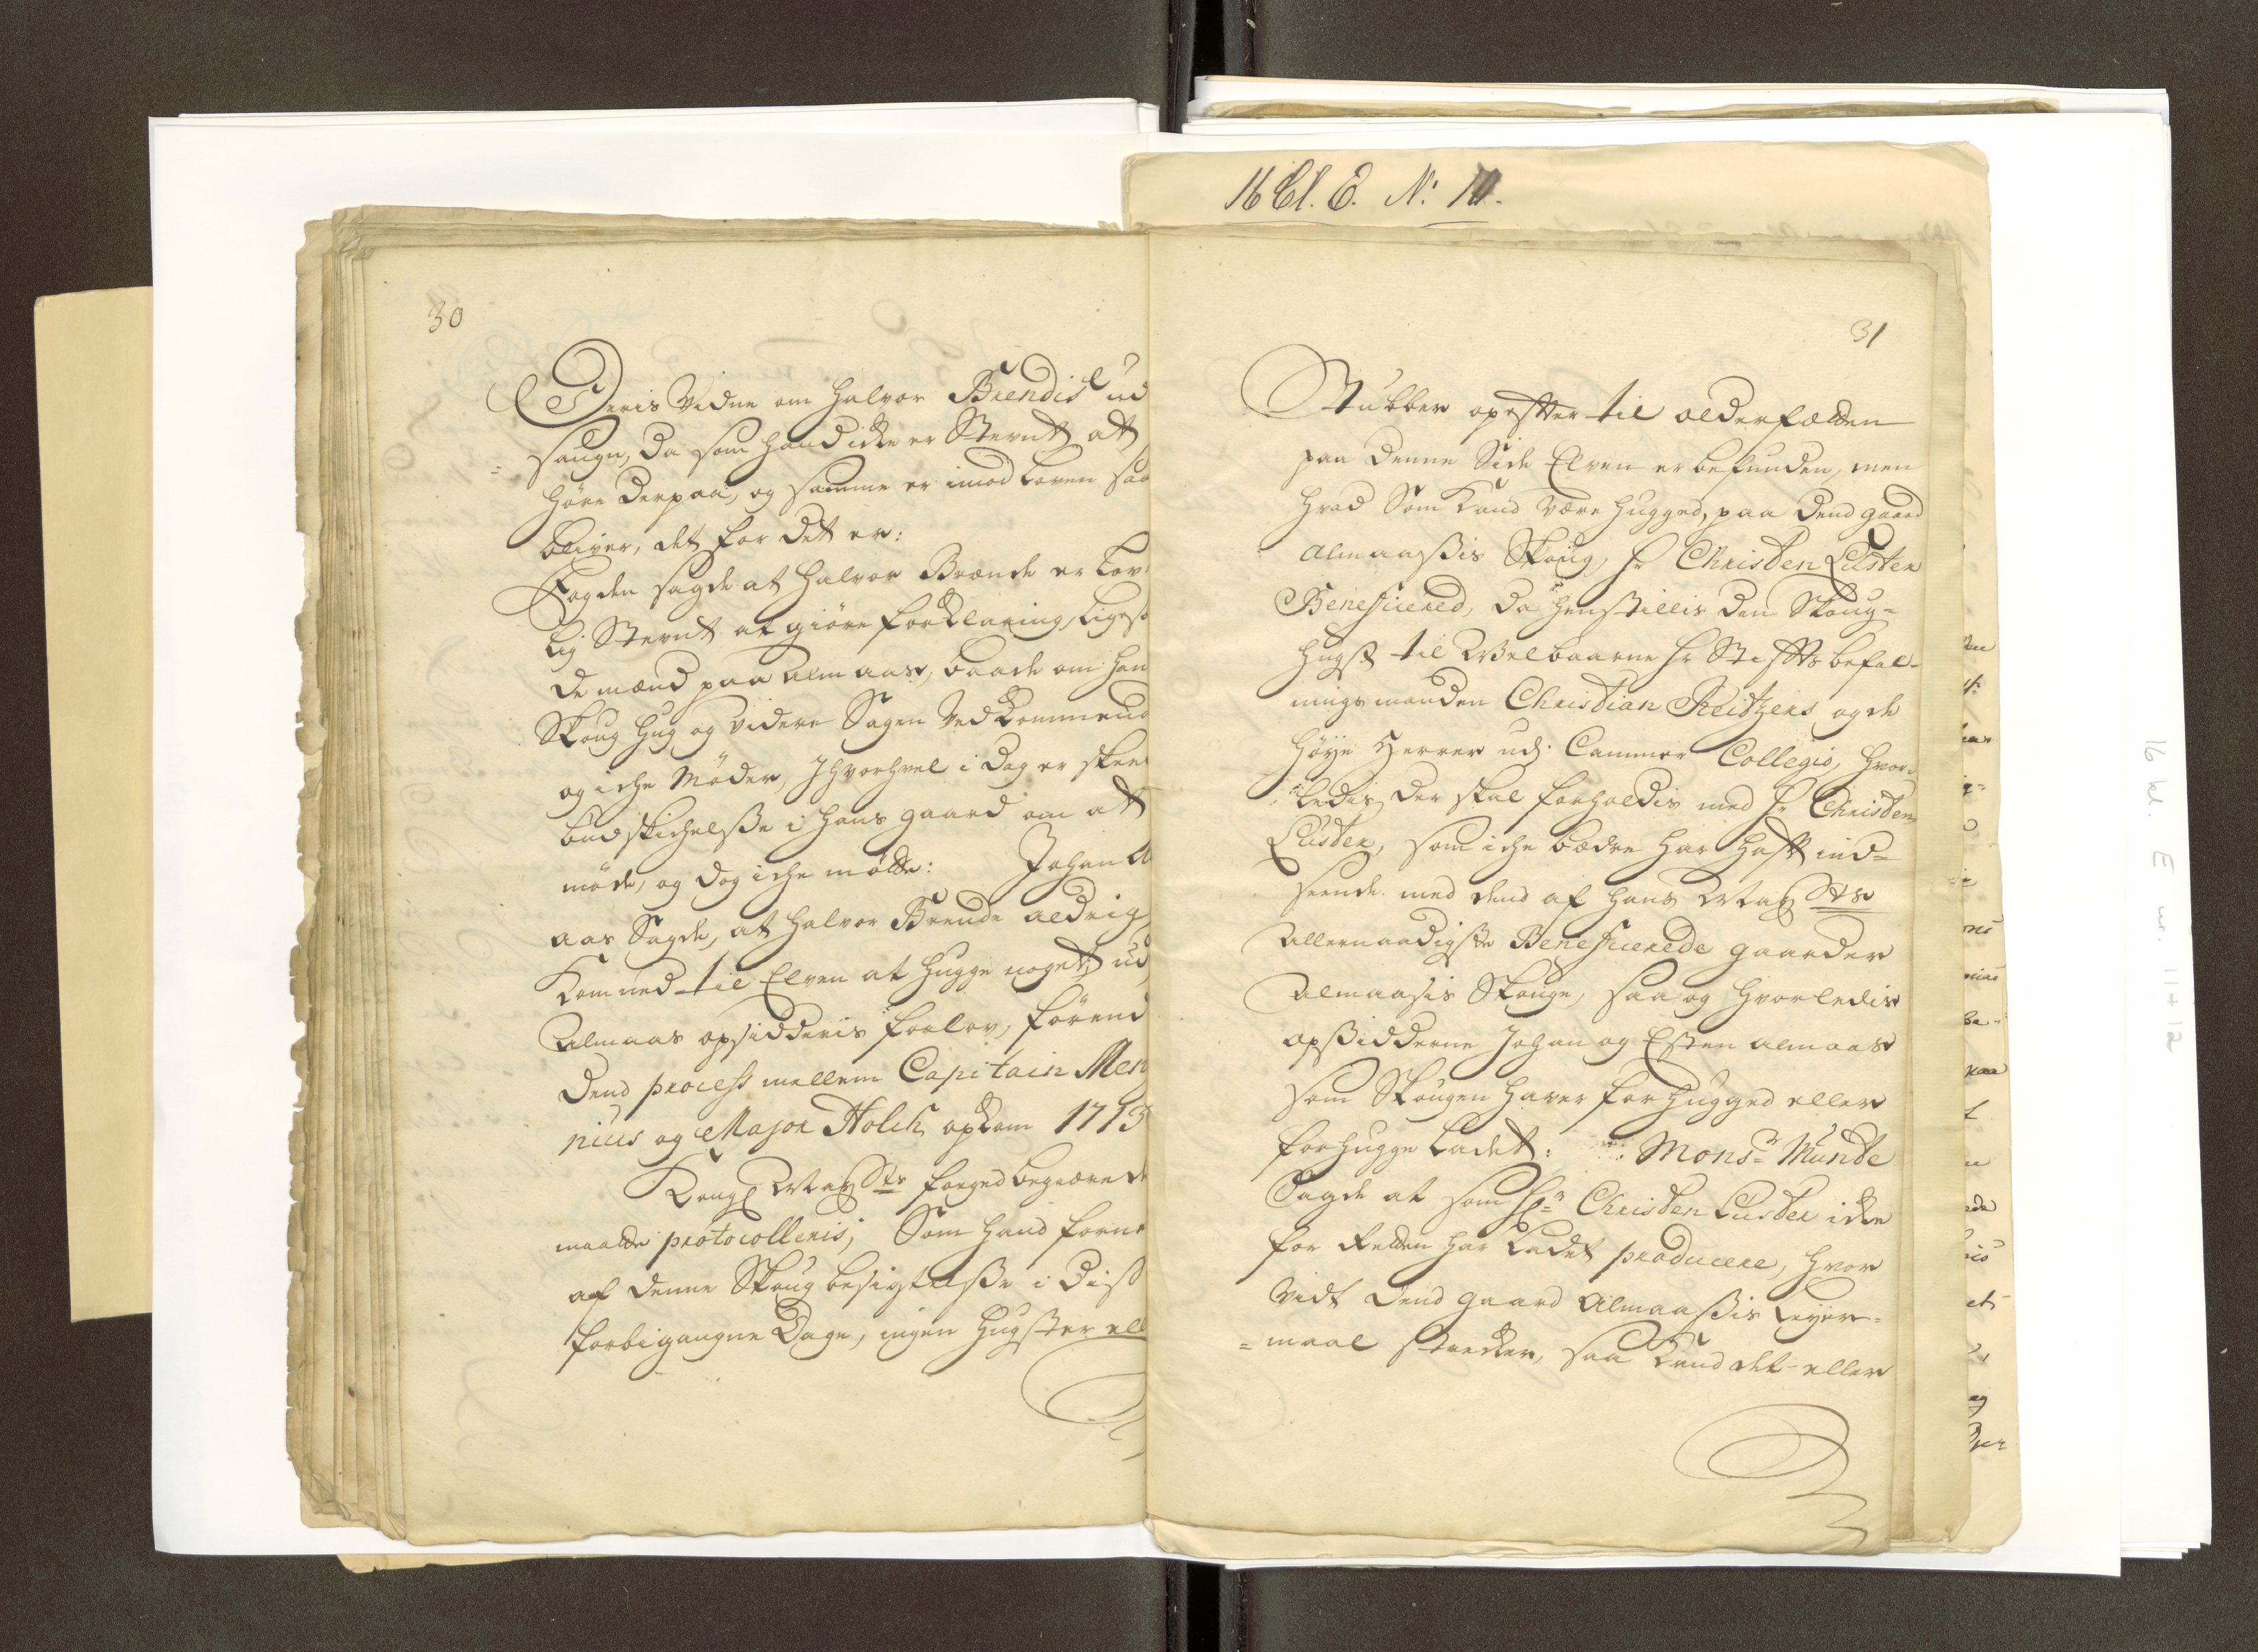 16 Cl. E. N: 11.
30
Deris Vidne om Halvor Brendis ud
saugn, da som hand icke er Stevnt at
høre derpaa, og samme er imod loven saa
bliver, det for det er:
Fogden sagde at Halvor Brænde er Lov
lig Stevnt at giøre forklaring, ligeso
de mænd paa Almaas, baade om han
Skoug hug og videre Sagen Vedkommend
og iche Møder, Ihvorvel i dag er skeed
budskichelsse i hans gaard om at
møde, og dog iche mødte: Johan Al
aas Sagde, at Halvor Brende aldrig
kom ned til Elven at hugge noget, ud
Almaas opsidderis forlov, førend
dend process mellem Capitain Men
nius og Major Holch opkom 1713
Kongl May Sts foged begiærede
maatte protocolleris, Som hand forne
af denne Skoug besigtelsse i diss
forbigangne Dage, ingen Hugster ell
31
Stubber opefter til ælderfælden
paa denne Side Elven er befunden, men
hvad Som kand være hugged, paa dend gaard
Almaassis Skoug, hr Christen Luster
Beneficered, da henstillis den Skoug=
hugst til Welbaarne hr Stiftsbefal-
ningsmanden Christian Reitzers og de
høye Herrer udj Cammer Collegio, hvor=
ledis der skal forholdis med hr Christen
Luster, som iche bædre har hafft ind=
seende med dend af hans May Sts
Allernaadigste Beneficerede gaarder
Almaasis Skouge, saa og hvorledis
opsidderne Johan og Esten Almaas
som Skougen haver forhugged eller
forhugge ladet: Monsr Munde
Sagde at som Hr Christen Luster icke
for Retten har ladet producere, hvor
vidt dend gaard Almaassis Leyer=
=maal strecker, saa kand det eller
16 kl. E nr. 11+12